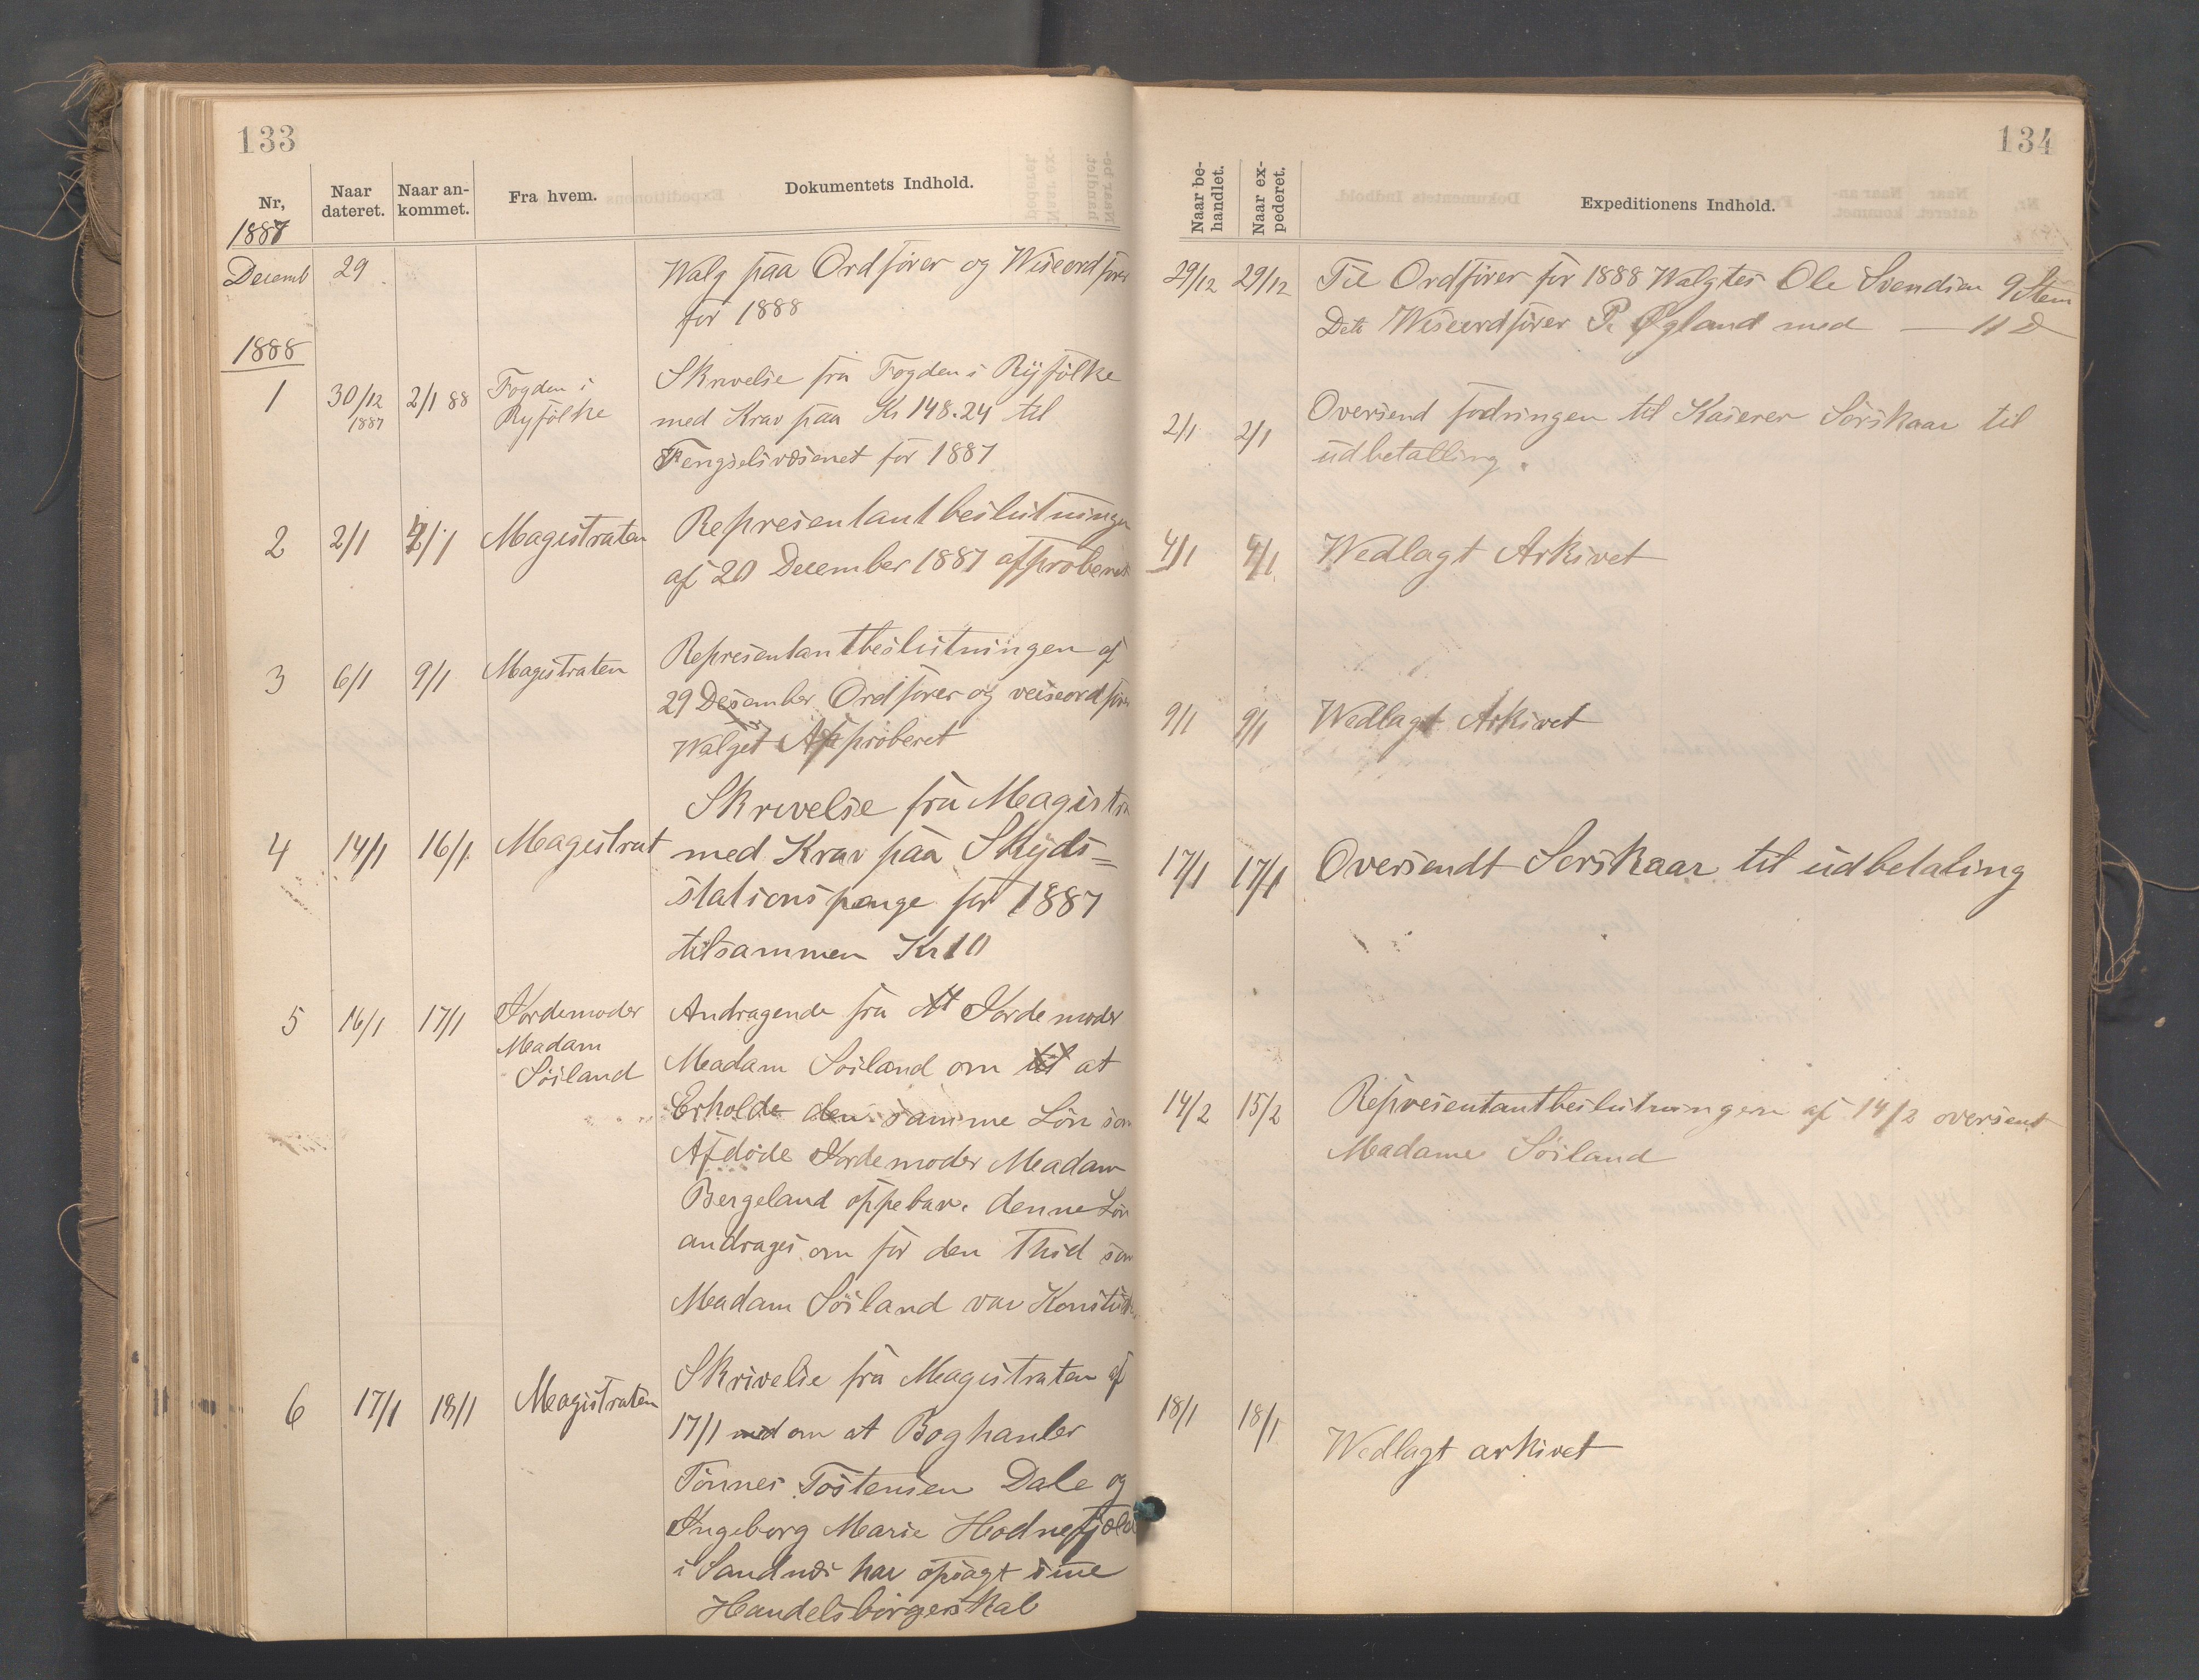 133
Nr,
Naar dateret.
Naar an-kommet.
Fra hvem.
Dokumentets Indhold.
1887
Decemb 29
Walg paa Ordförer og Wiseordförer
for 1888
1888
1 30/12 1887 2/1 88 Fogden i Ryfölke
Skrivelse fra Fogden i Ryfölke
med Krav paa Kr 148.24 til
Fengselsvæsenet for 1887
2 2/1 4/1 Magistraten
Representantbeslutningen
af 20 December 1887 approberet
3 6/1 9/1 Magistraten
Representantbeslutningen af
29 Desember Ordförer og veiseordförer
Walget Approberet
4 14/1 16/1 Magistrat
Skrivelse fra Magistra
med Krav paa Skyds=
stationspenge for 1887
tilsammen Kr 10
5 16/1 17/1 Jordemoder
Madam
Söiland
Andragende fra Jordemoder
Madam Söiland om at
Erholde den samme Lön som
Afdöde Jordemoder Madam
Bergeland oppebar. denne Lön
andrages om for den Thid som
Madam Söiland var
6 17/1 18/1 Magistraten
Skrivelse fra Magistraten af
17/1 om at Boghanler
Tönnes Tostensen Dale og
Ingeborg Marie Hodnefjeld
i Sandnæs har opsagt sine
Handelsborgerskab
134
Naar be-handlet.
Naar ex-pederet.
Expeditionens Indhold.
29/12 29/12 Til Ordförer for 1888 Walgtes Ole Svendsen 9 Stem
Dets Wiseordförer P. Øgland med — 11 D
2/1 2/1 Oversend fodringen til Kaserer Sörskaar til
udbetalling.
4/1 4/1 Wedlagt Arkivet
9/1 9/1 Wedlagt Arkivet
17/1 17/1 Oversendt Sörskaar til udbetaling
14/2 15/2 Representantbeslutningen af 14/2 oversent
Madame Söiland
18/1 18/1
Wedlagt arkivet